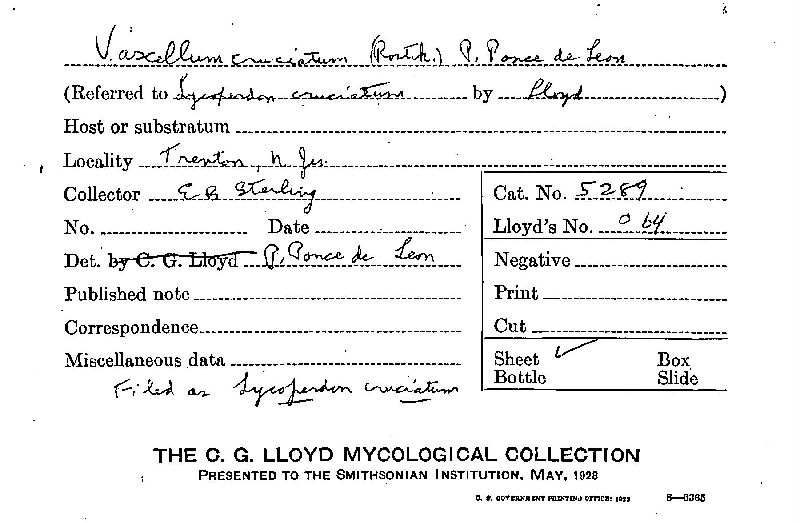 Vascellum cruciatum (Rostk.) P. Ponce de Leon
(Referred to Lycoperdon cruciatum by Lloyd )
Host or substratum
Locality Trenton, N Jes.
Collector E B Sterling
Cat. No. 5289
No. Date
Lloyd's No. 064
Det. by C. G. Lloyd P. Ponce de Leon
Negative
Published note
Print
Correspondence
Cut
Miscellaneous data
Sheet ✓ Box
Bottle Slide
Filed as Lycoperdon cruciatum
THE C. G. LLOYD MYCOLOGICAL COLLECTION
PRESENTED TO THE SMITHSONIAN INSTITUTION, MAY, 1928
U. S. GOVERNMENT PRINTING OFFICE: 1929 8—6365